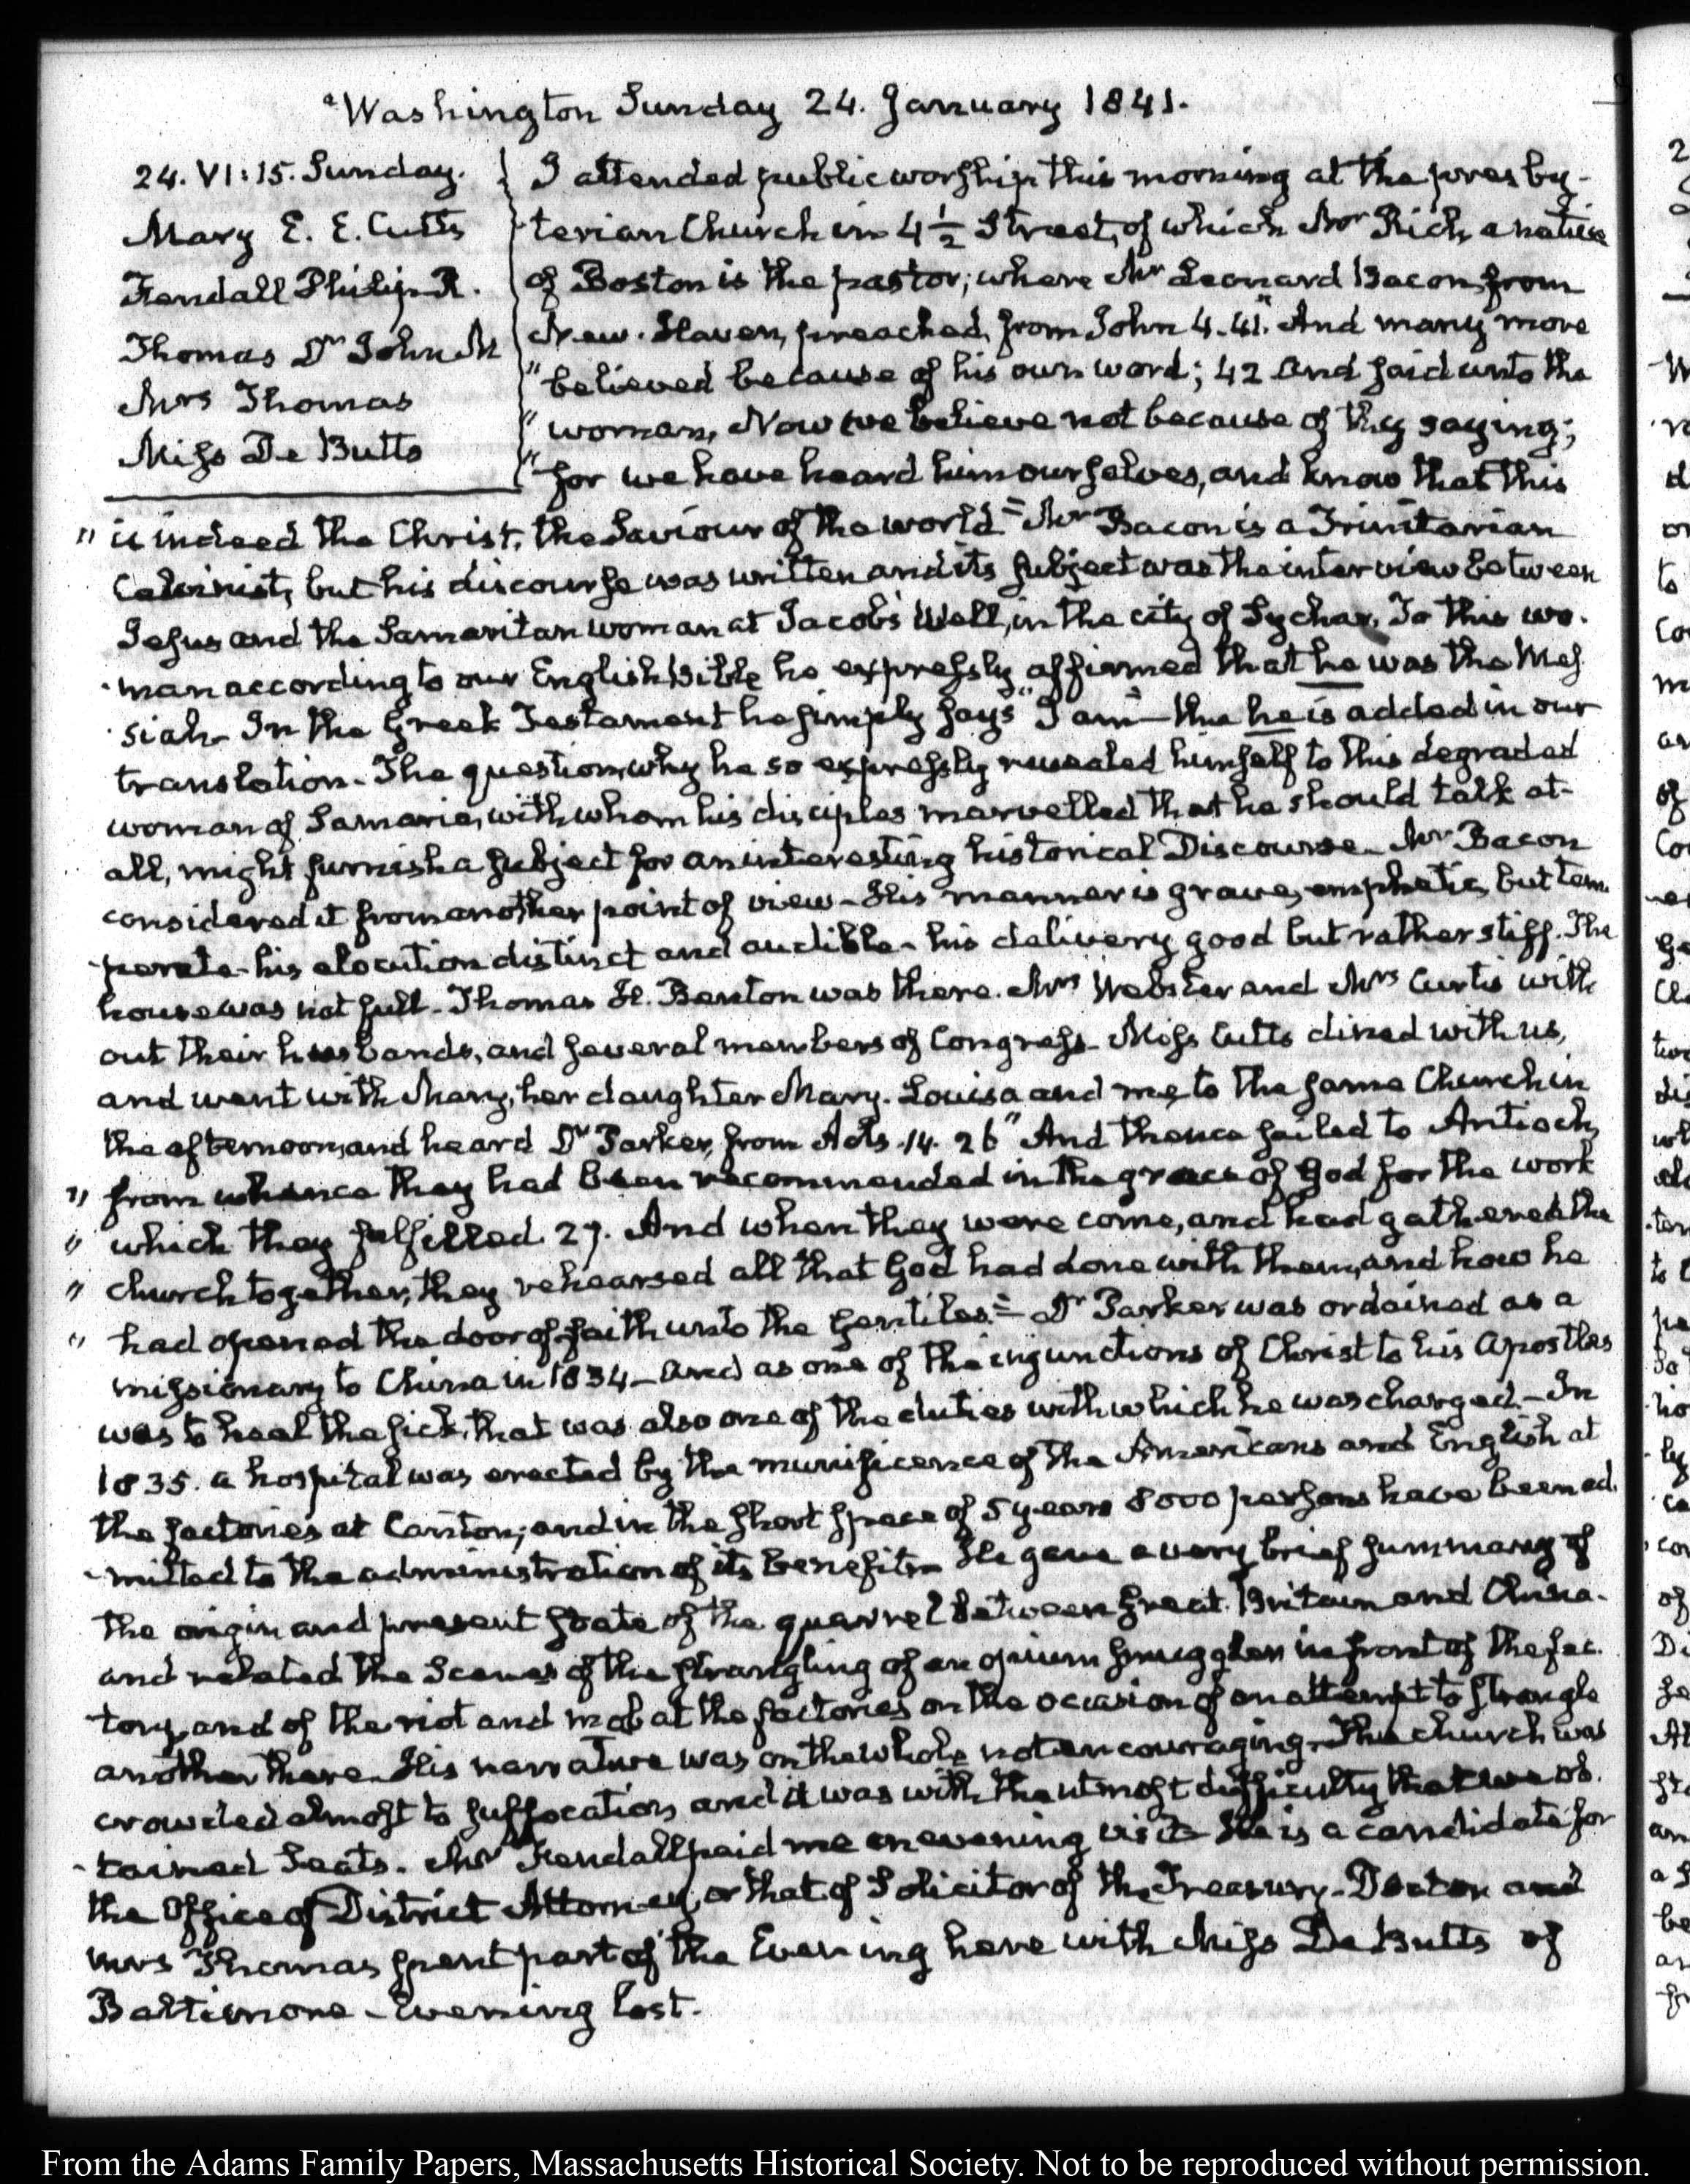 Washington Sunday 24. January 1841.
24. VI:15. Sunday.
Mary E. E. Cutts
Fendall Philip R.
Thomas Dr John M
Mrs Thomas
Miss De Butts
I attended public worship this morning at the presby-
terian Church in 4 1/2 Street, of which Mr Rich, a native
of Boston is the pastor; where Mr Leonard Bacon, from
New-Haven, preached, from John 4.41. "And many more
" believed because of his own word; 42 And said unto the
" woman, Now we believe not because of thy saying;
" for we have heard him ourselves, and know that this
" is indeed the Christ, the Saviour of the world"— Mr Bacon is a Trinitarian
Calvinist, but his discourse was written and its subject was the interview between
Jesus and the Samaritan woman at Jacob's Well, in the city of Sychar. To this wo-
-man according to our English Bible he expressly affirmed that he was the Mes-
-siah— In the Greek Testament he simply says "I am"— the he is added in our
translation— The question, why he so expressly revealed himself to this degraded
woman of Samaria, with whom his disciples marvelled that he should talk at
all, might furnish a subject for an interesting historical Discourse— Mr Bacon
considered it from another point of view— His manner is grave, emphatic, but tem-
-perate— his elocution distinct and audible— his delivery good but rather stiff. The
house was not full— Thomas H. Benton was there. Mrs Webster and Mrs Curtis with
out their husbands, and several members of Congress— Miss Cutts dined with us,
and went with Mary, her daughter Mary-Louisa and me, to the same Church in
the afternoon, and heard Dr Parker, from Acts. 14. 26 "And thence sailed to Antioch,
" from whence they had been recommended in the grace of God for the work
" which they fulfilled. 27. And when they were come, and had gathered the
" church together, they rehearsed all that God had done with them, and how he
" had opened the door of faith unto the Gentiles"— Dr Parker was ordained as a
missionary to China in 1834— and as one of the injunctions of Christ to his Apostles
was to heal the sick, that was also one of the duties with which he was charged— In
1835. a hospital was erected by the munificence of the Americans and English at
the factories at Canton; and in the short space of 5 years 8000 persons have been ad-
-mitted to the administration of its benefits— He gave a very brief summary of
the origin and present state of the quarrel between Great-Britain and China—
and related the Scenes of the strangling of an opium smuggler in front of the fac-
tory, and of the riot and mob at the factories on the occasion of an attempt to strangle
another there— His narrative was on the whole not encouraging— The church was
crowded almost to suffocation, and it was with the utmost difficulty that we ob-
-tained Seats. Mr Fendall paid me an evening visit— He is a candidate for
the Office of District Attorney, or that of Solicitor of the Treasury— Doctor and
Mrs Thomas spent part of the Evening here with Miss De Butts of
Baltimore— Evening lost.
From the Adams Family Papers, Massachusetts Historical Society. Not to be reproduced without permission.